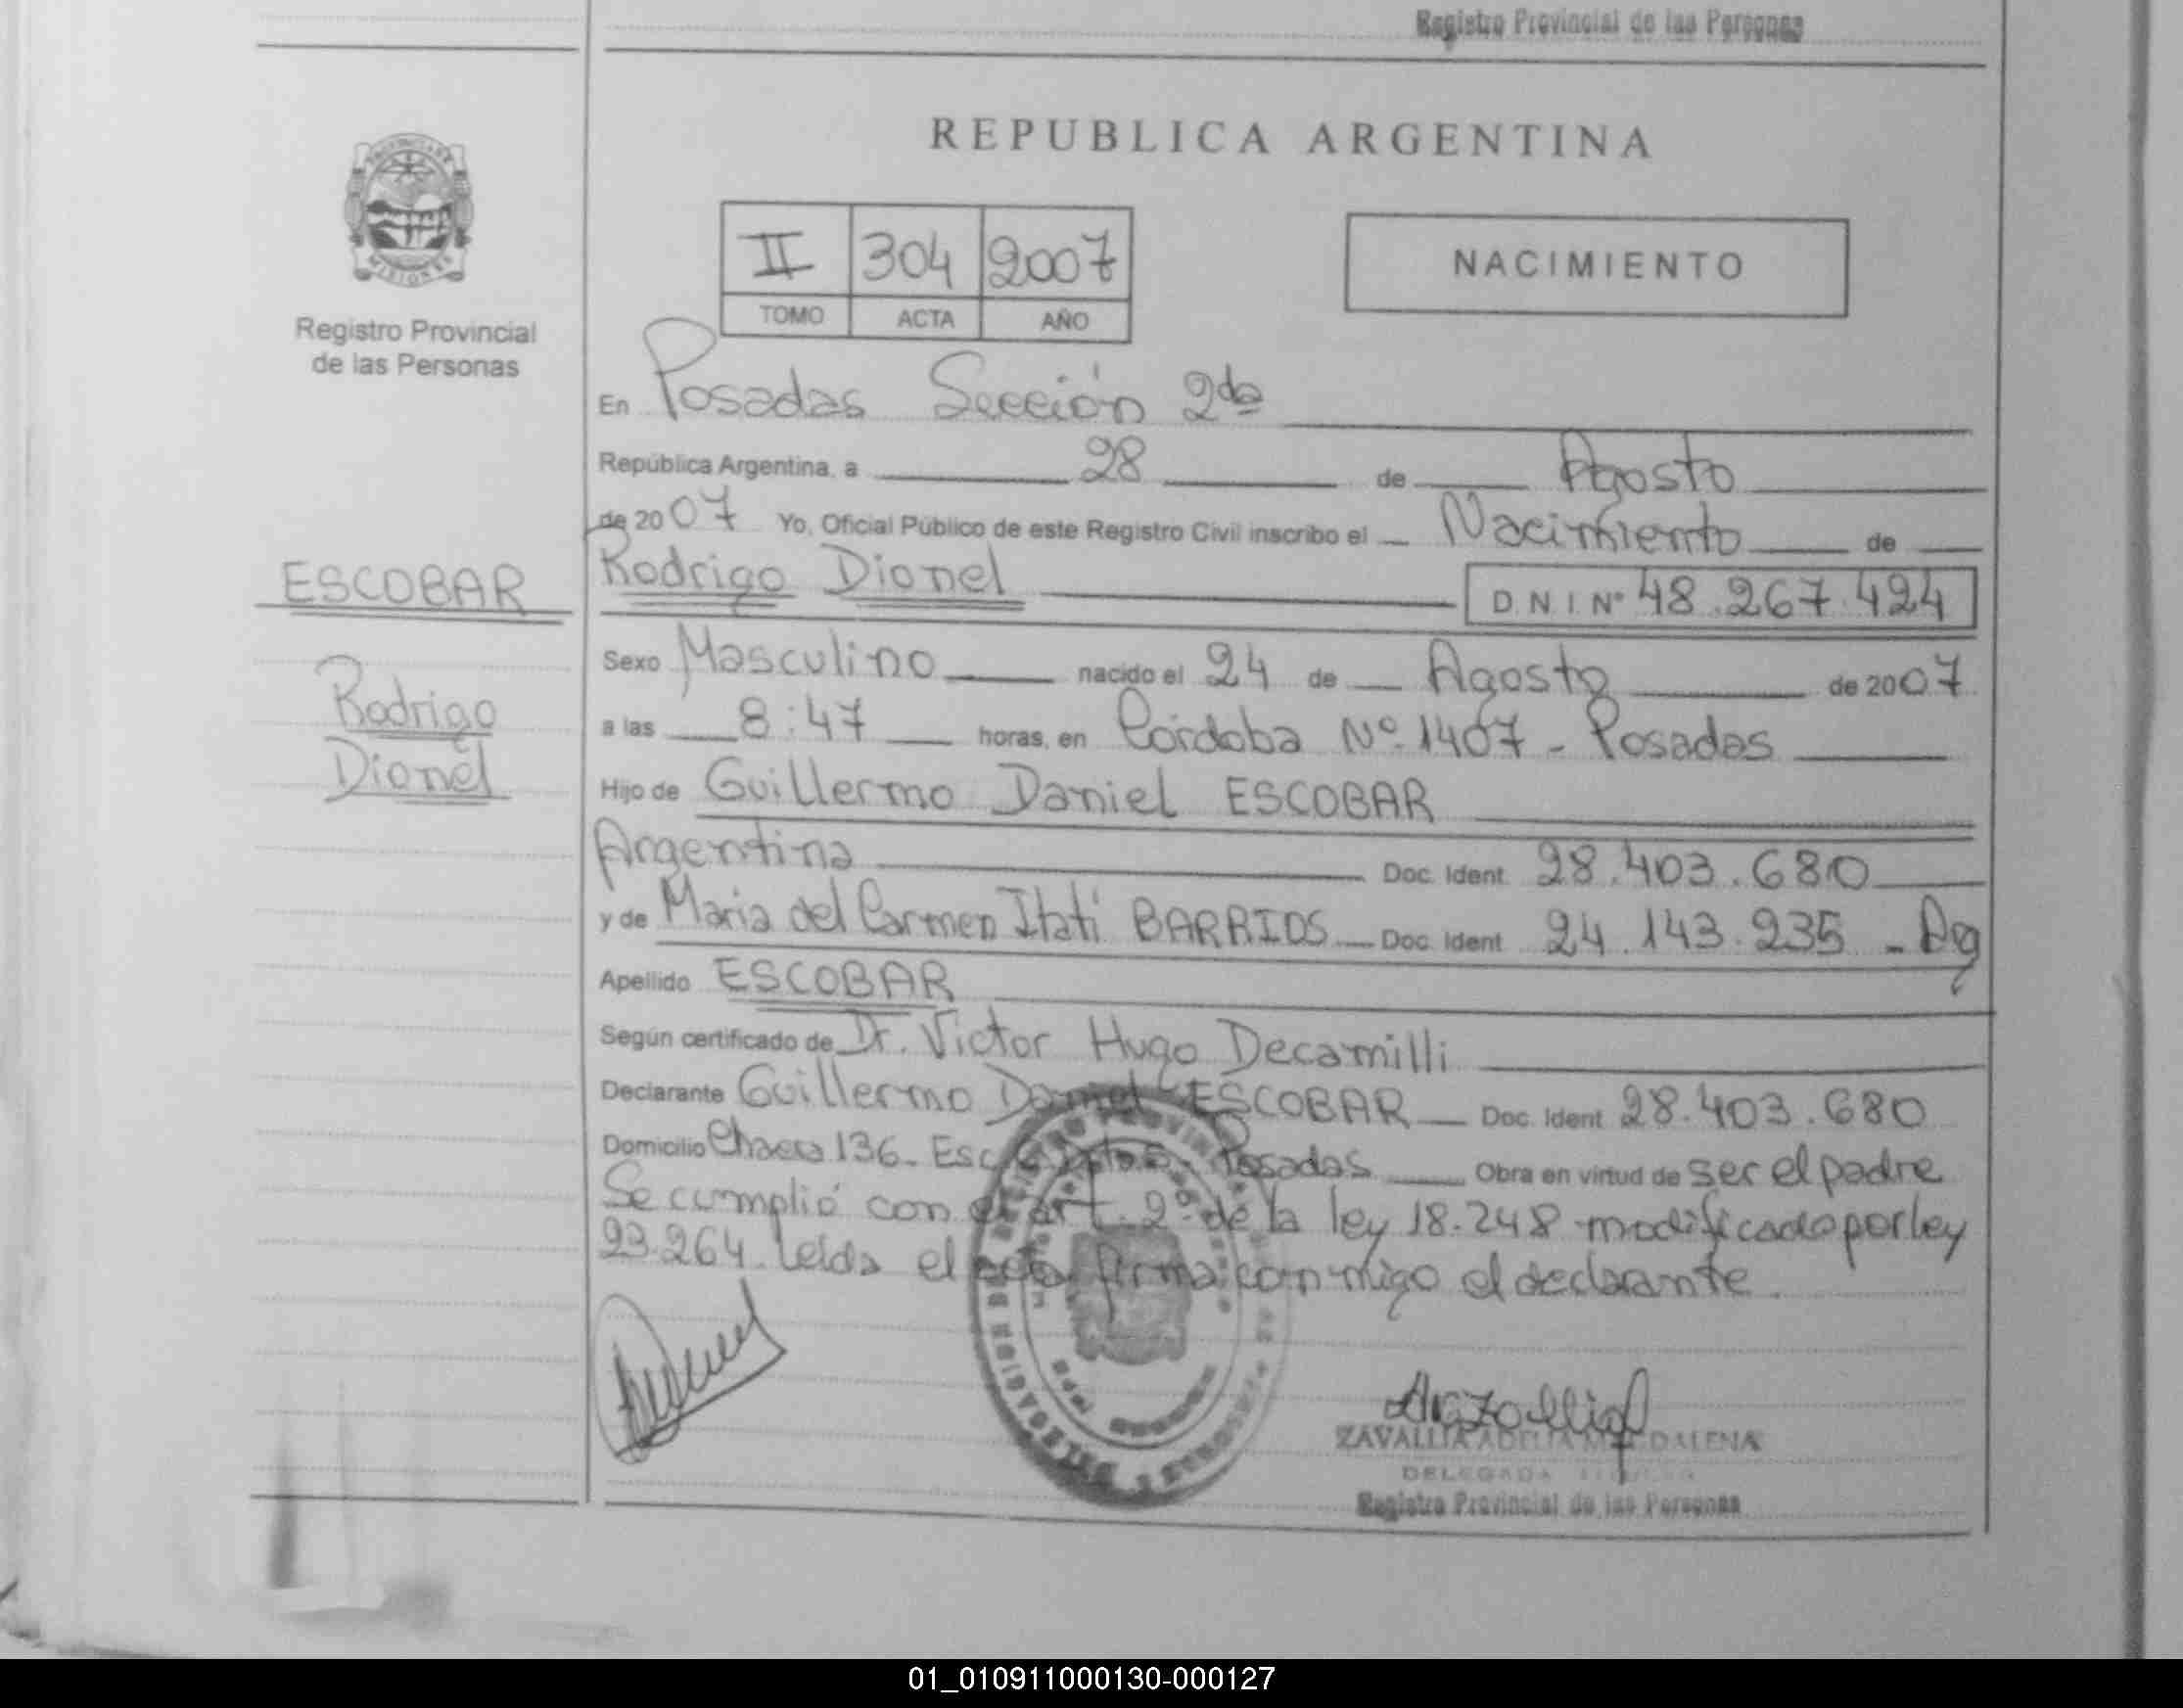 Registro Provincial de las Personas
REPUBLICA ARGENTINA
PROVINCIA DE
MISIONES
Registro Provincial
de las Personas
II 304 2007
TOMO ACTA AÑO
NACIMIENTO
En Posadas Sección 2da
República Argentina, a 28 de Agosto
de 2007 Yo, Oficial Público de este Registro Civil inscribo el Nacimiento de
ESCOBAR
Rodrigo
Dionel
Rodrigo Dionel D.N.I. Nº 48.267.424
Sexo Masculino nacido el 24 de Agosto de 2007
a las 8:47 horas, en Córdoba Nº 1407 - Posadas
Hijo de Guillermo Daniel ESCOBAR
Argentina Doc. Ident. 28.403.680
y de Maria del Carmen Itati BARRIOS Doc. Ident. 24.143.235 - Arg
Apellido ESCOBAR
Según certificado de Dr. Victor Hugo Decamilli
Declarante Guillermo Daniel ESCOBAR Doc. Ident. 28.403.680
Domicilio Chacra 136 - Esc Posadas Obra en virtud de ser el padre
Se cumplió con el art. 2º de la ley 18.248 modificado por ley
23.264. Leída el acta firma conmigo el declarante.
ZAVALLIA ADELIA MAGDALENA
DELEGADA
Registro Provincial de las Personas
01_010911000130-000127